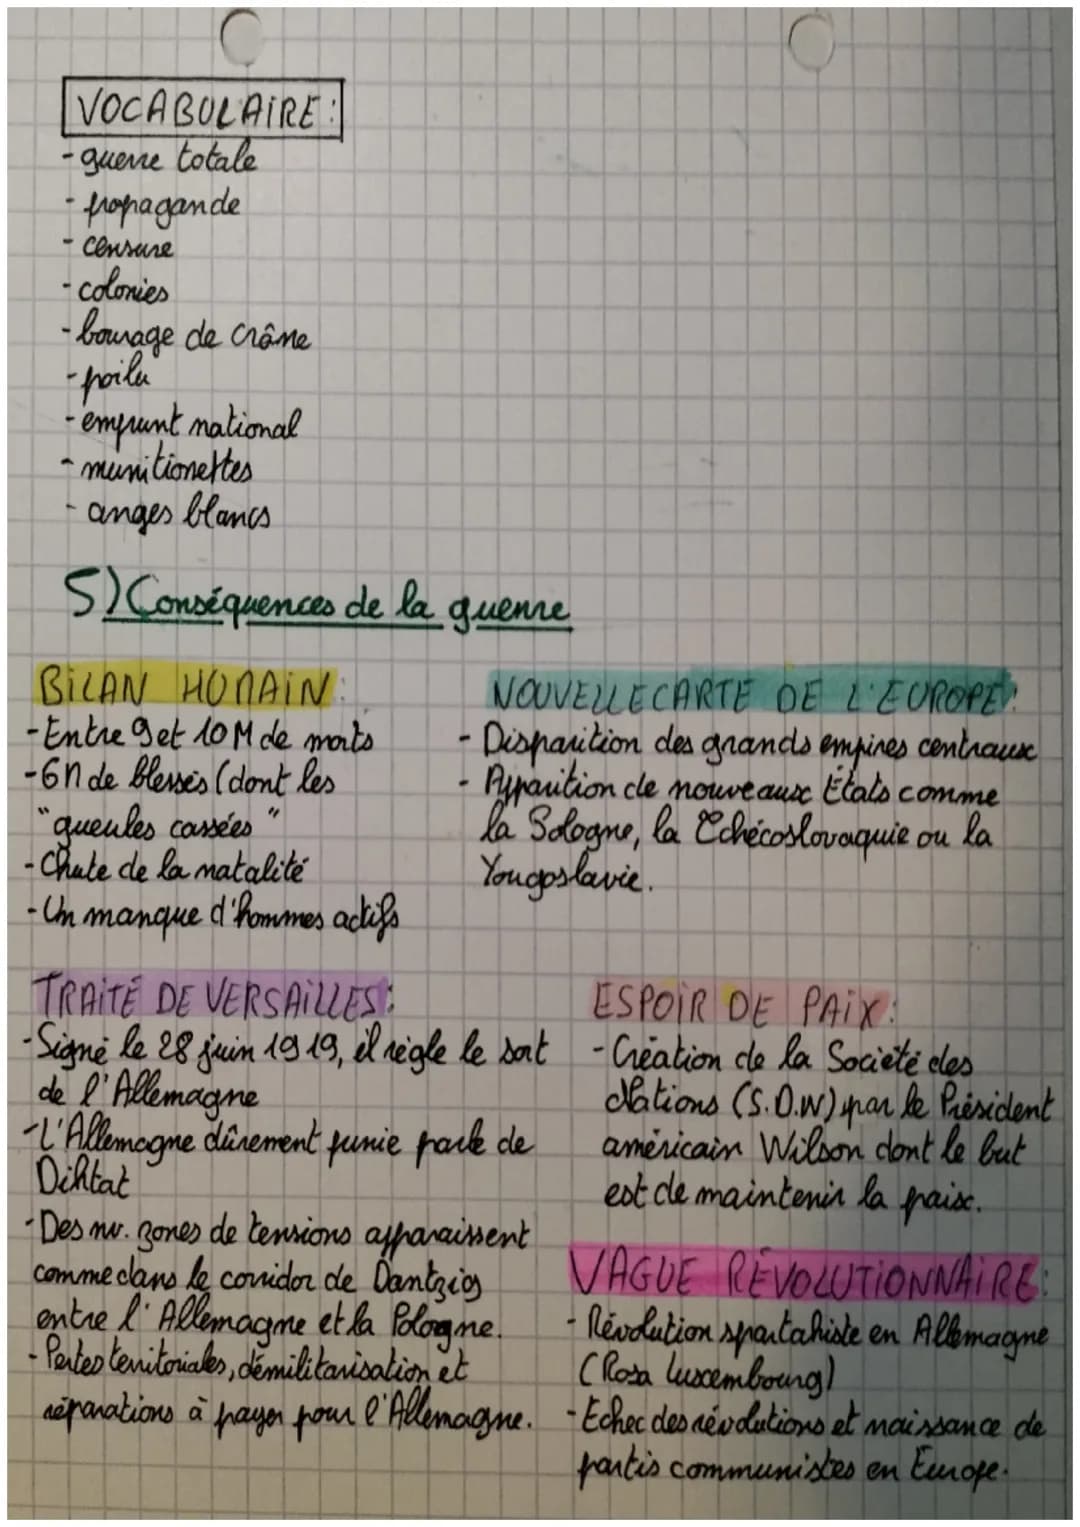 VOCABULAIRE :
- guerre totale
- propagande
- censure
- colonies
- bourage de crâne
- poilu
- emprunt national
- munitionettes
- anges blancs
5) Conséquences de la guerre
BILAN HUMAIN :
- Entre 9 et 10 M de morts
- 6M de blessés (dont les
"gueules cassées"
- Chute de la natalité
- Un manque d'hommes actifs
NOUVELLE CARTE DE L'EUROPE :
- Disparition des grands empires centraux
- Apparition de nouveaux États comme
la Pologne, la Tchécoslovaquie ou la
Yougoslavie.
TRAITÉ DE VERSAILLES :
- Signé le 28 juin 1919, il règle le sort
de l'Allemagne
- L'Allemagne dûrement punie parle de
Diktat
- Des nv. zones de tensions apparaissent
comme dans le corridor de Dantzig
entre l'Allemagne et la Pologne.
- Pertes territoriales, démilitarisation et
réparations à payer pour l'Allemagne.
ESPOIR DE PAIX :
- Création de la Société des
Nations (S.D.N) par le Président
américain Wilson dont le but
est de maintenir la paix.
VAGUE RÉVOLUTIONNAIRE :
- Révolution spartakiste en Allemagne
(Rosa Luxembourg)
- Echec des révolutions et naissance de
partis communistes en Europe.